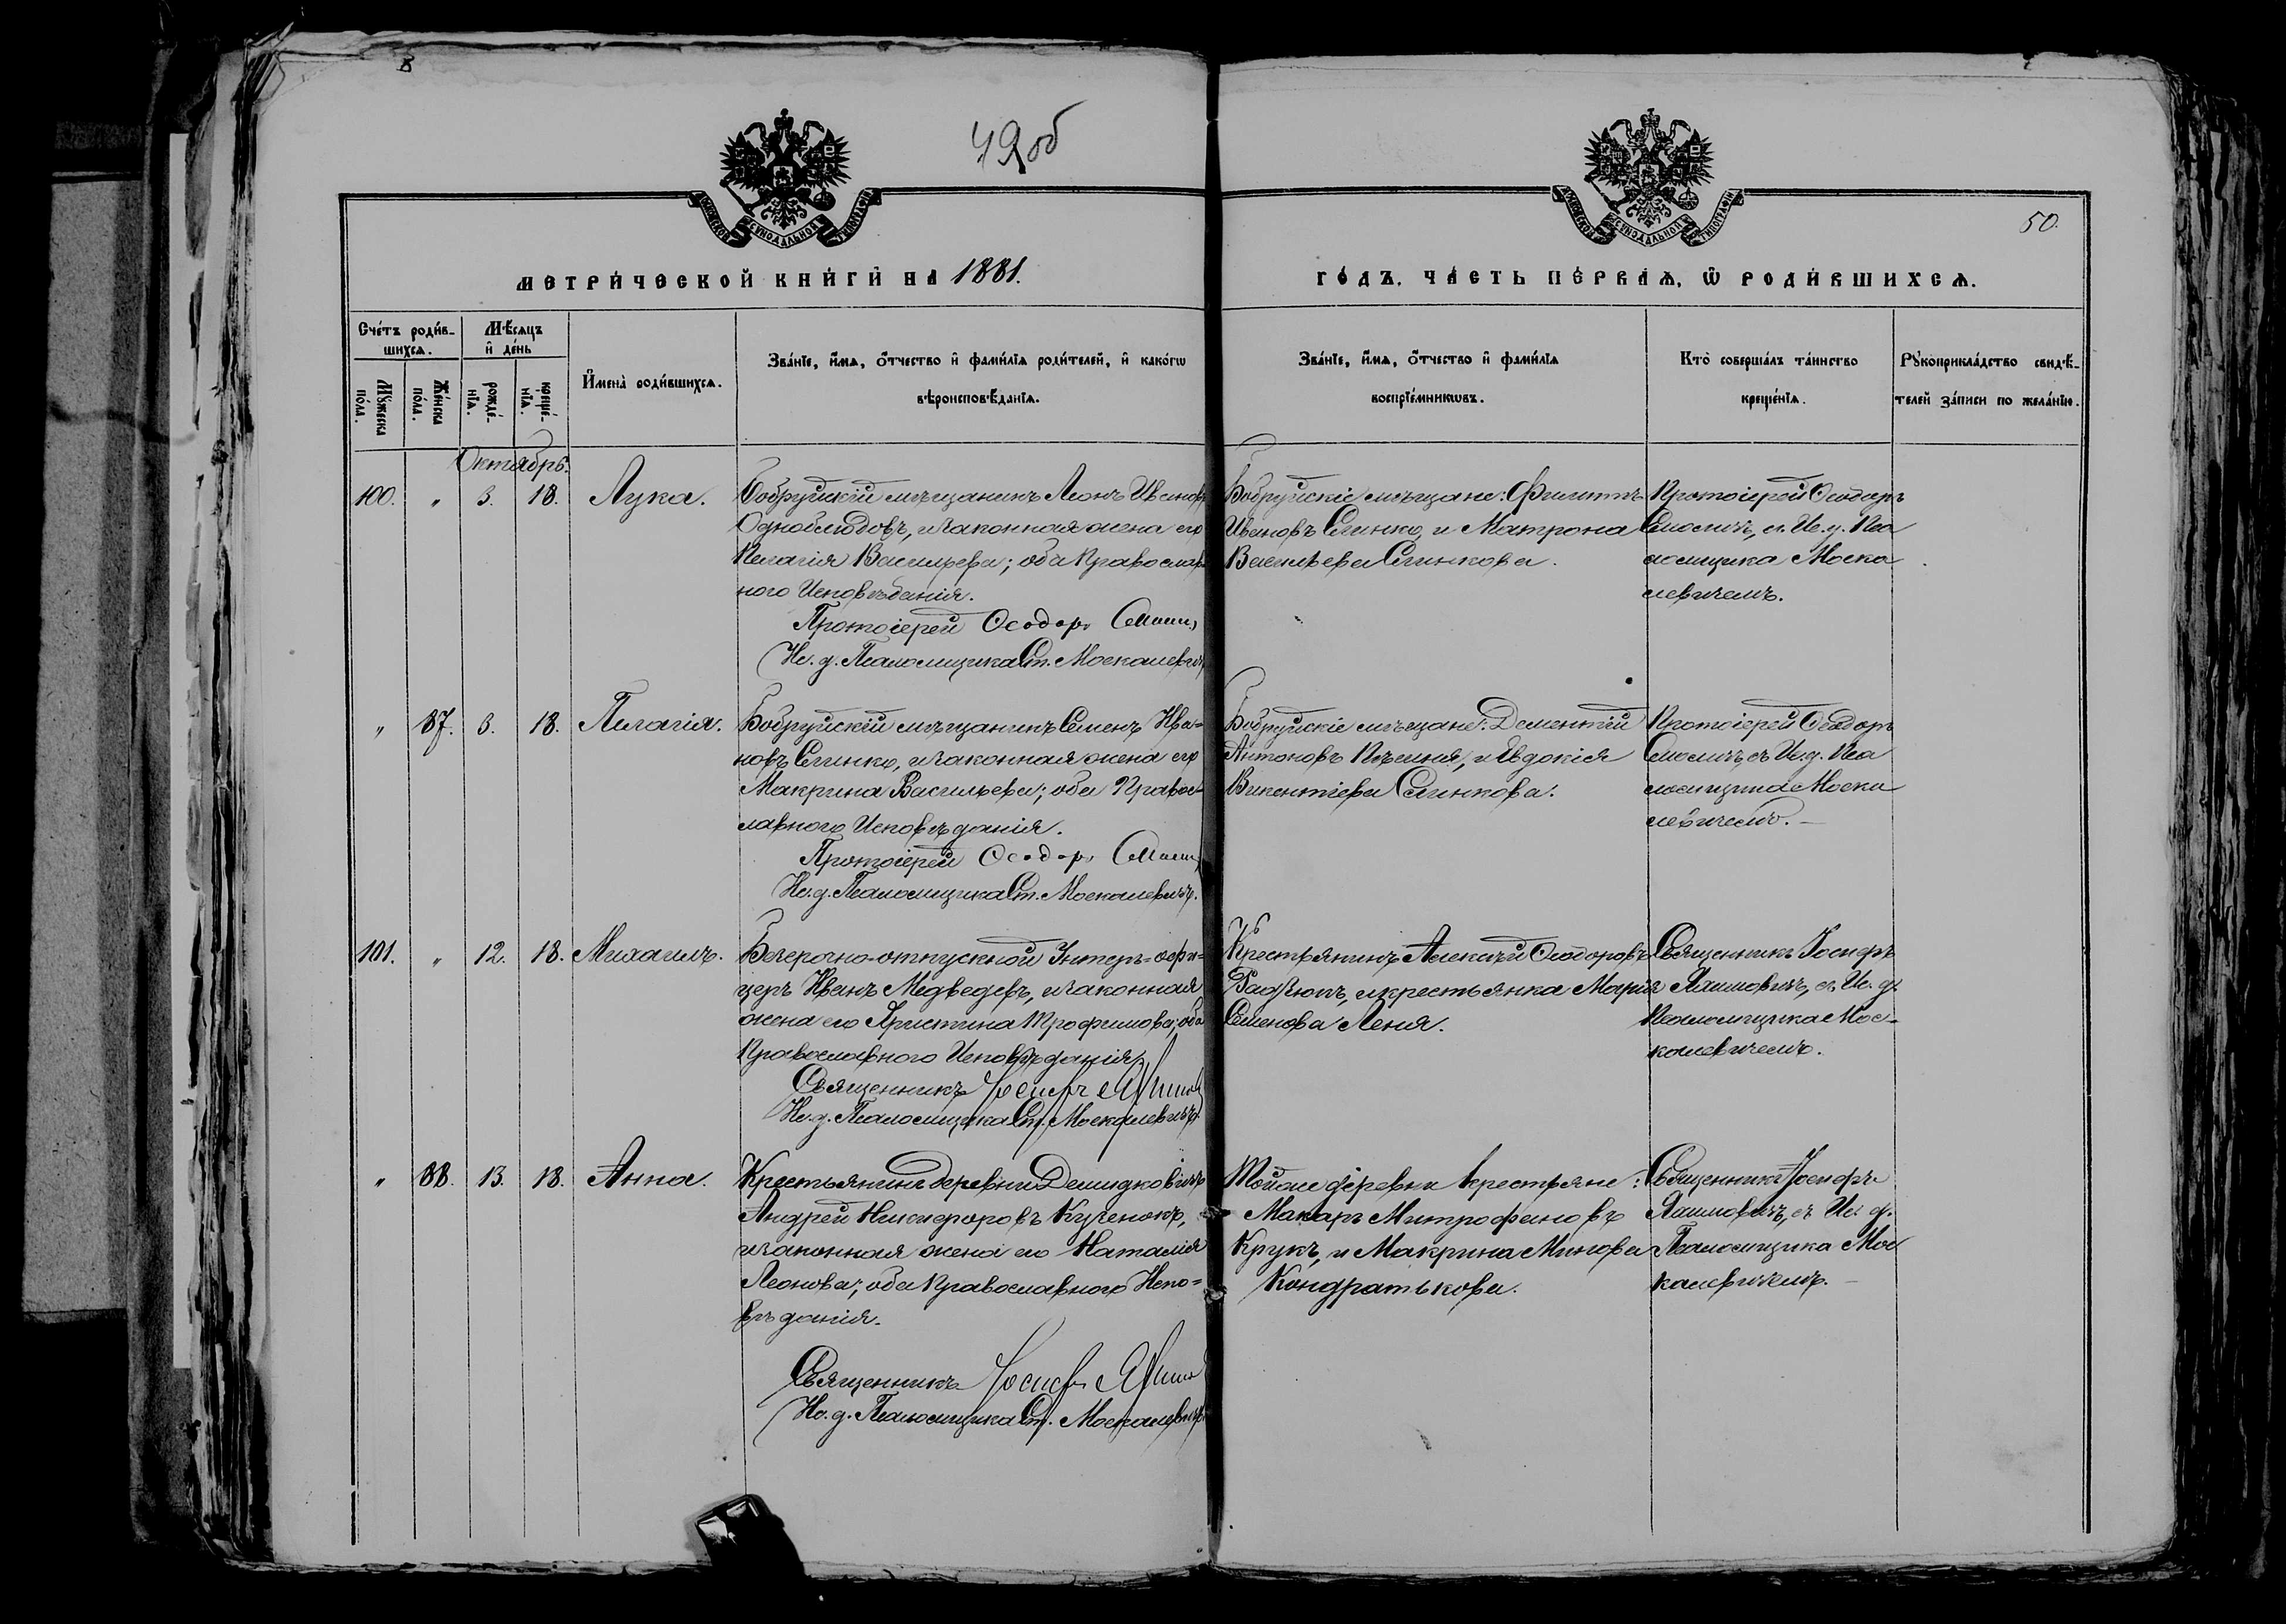 49об
50.
МЕТРИЧЕСКОЙ КНИГИ НА 1881.
ГОДЪ. ЧАСТЬ ПЕРВАЯ, Ѿ РОДИВШИХСЯ.
Счетъ родив-
шихся.
Мѣсяцъ
и день
Мужеска
пола.
Женска
пола.
рожде-
нія.
креще-
нія.
Имена родившихся.
Званіе, имя, отчество и фамилія родителей, и какогѡ
вѣроисповѣданія.
Званіе, имя, отчество и фамилія
воспріемникѡвъ.
Кто совершалъ таинство
крещенія.
Рукоприкладство свидѣ-
телей записи по желанію.
Октябрь.
100. " 3. 18. Лука.
Бобруйскій мѣщанинъ Леонъ Ивановъ
Одноблюдовъ, и законная жена его
Пелагія Васильева; оба Православ
ного Исповѣданія.
Протоіерей Ѳеодоръ Смолич
Ис. д. Псаломщика Ст. Москалевичъ
Бобруйскіе мѣщане: Филиппъ
Ивановъ Слинко, и Матрона
Васильева Слинкова.
Протоіерей Ѳеодоръ
Смоличъ, съ Ис. д. Пса
ломщика Моска
левичемъ.
" 87. 3. 18. Пелагія.
Бобруйскій мѣщанинъ Семенъ Ива=
новъ Слинко, и законная жена его
Макрина Васильева; оба Правос=
лавного Исповѣданія.
Протоіерей Ѳеодоръ Смолич
Ис. д. Псаломщика Ст. Москалевичъ.
Бобруйскіе мѣщане: Дементій
Антоновъ, и Евдокія
Викентіева Слинкова.
Протоіерей Ѳеодоръ
Смоличъ, съ Ис. д. Пса
ломщика Моска
левичемъ.
101. " 12. 18. Михаилъ.
Безсрочно-отпускной Унтеръ=офи=
церъ Иванъ Медведевъ, и законная
жена его Христина Трофимова; оба
Православного Исповѣданія.
Священникъ Іосифъ
Ис. д. Псаломщика Ст. Москалевичъ
Крестьянинъ Алексѣй Ѳеодоровъ
и крестьянка Марія
Семенова Леня.
Священникъ Іосифъ
съ Ис. д.
Псаломщика Мос=
калевичемъ.
" 88. 13. 18. Анна.
Крестьянинъ деревни Демидковичъ
Андрей Никифоровъ Кученокъ,
и законная жена его Наталія
Леонова; оба Православного Испо=
вѣданія.
Священникъ Іосифъ
Ис. д. Псаломщика Ст. Москалевичъ
Тойже деревни крестьяне:
Макаръ Митрофановъ
Крукъ, и Макрина Минова
Кондратькова.
Священникъ Іосифъ
съ Ис. д.
Псаломщика Мос
калевичемъ.